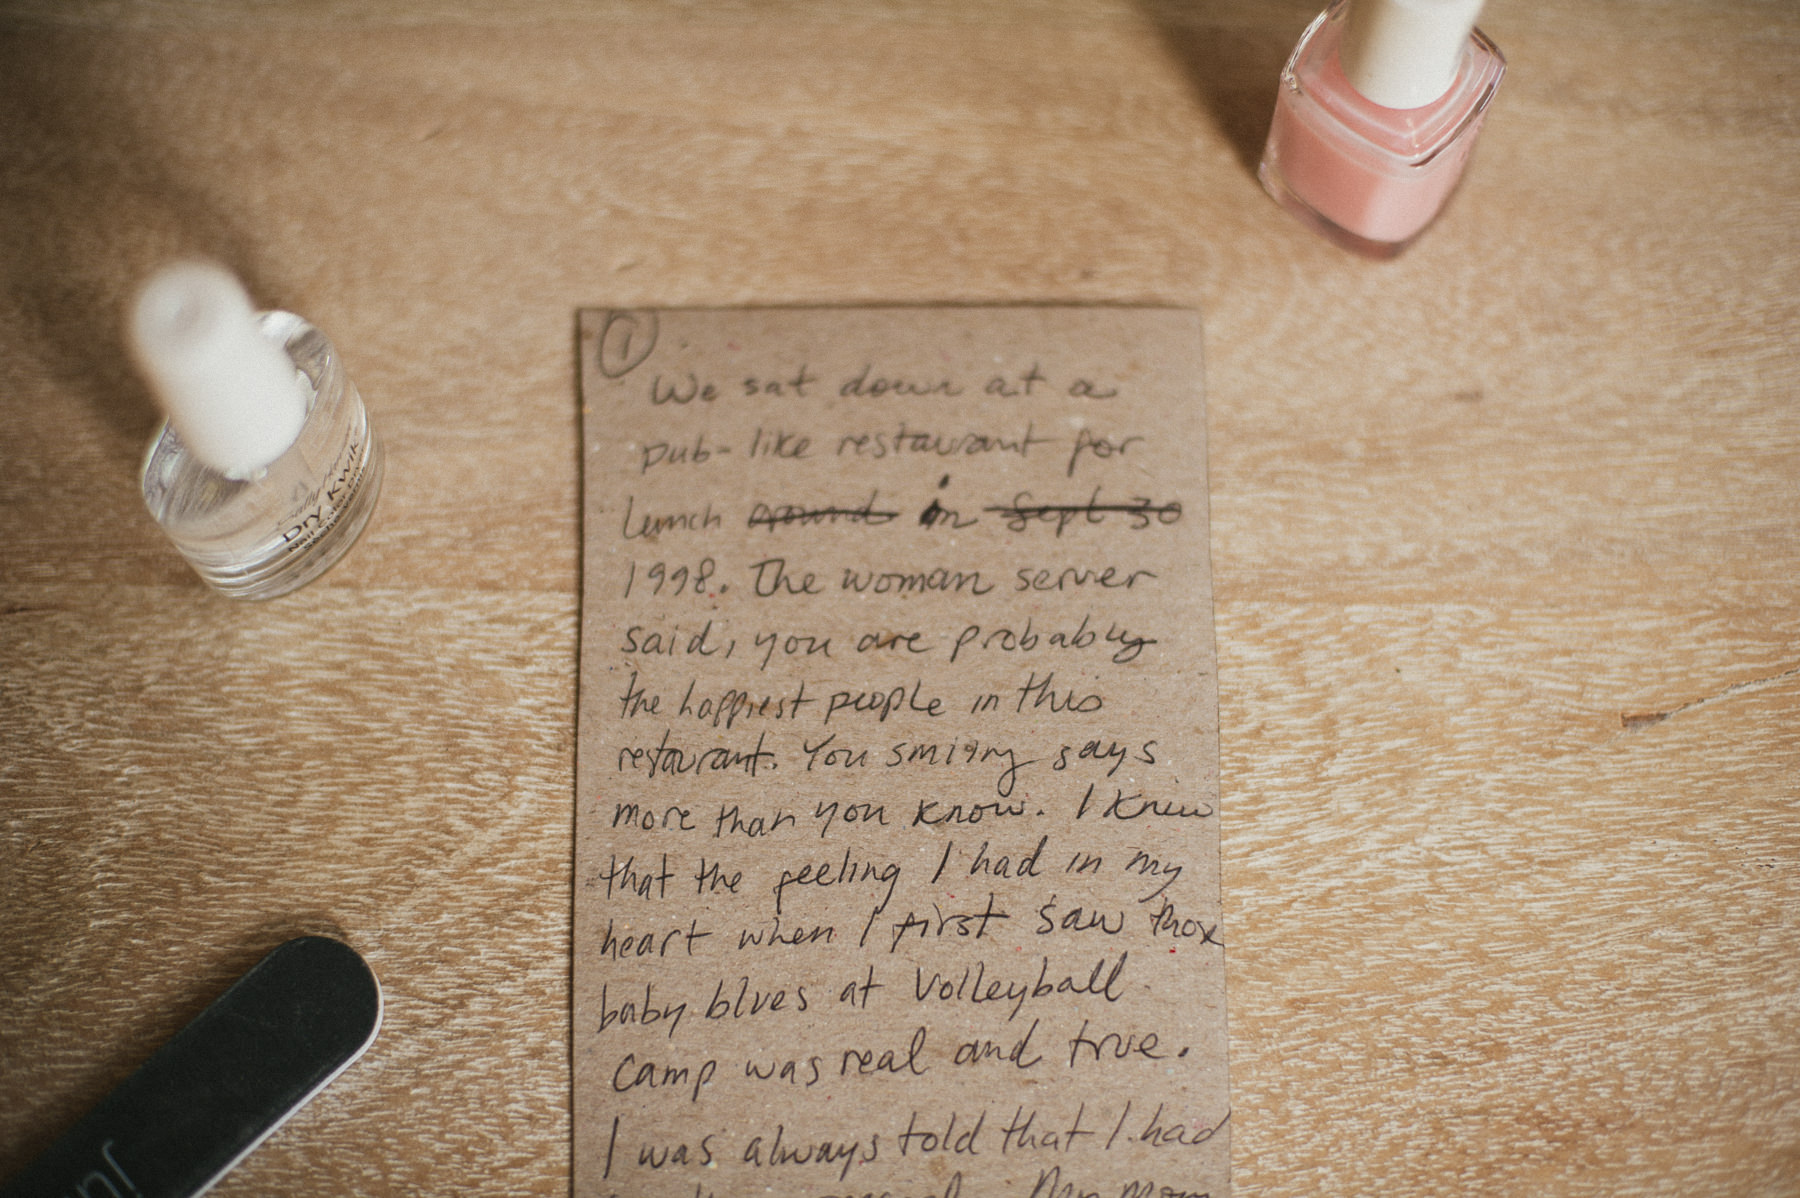 1
We sat down at a
pub-like restaurant for
lunch around in Sept 30
1998. The woman server
said, you are probably
the happiest people in this
restaurant. You smiling says
more than you know. I knew
that the feeling I had in my
heart when I first saw those
baby blues at Volleyball
Camp was real and true.
I was always told that I had
My mom
Dry Kwik